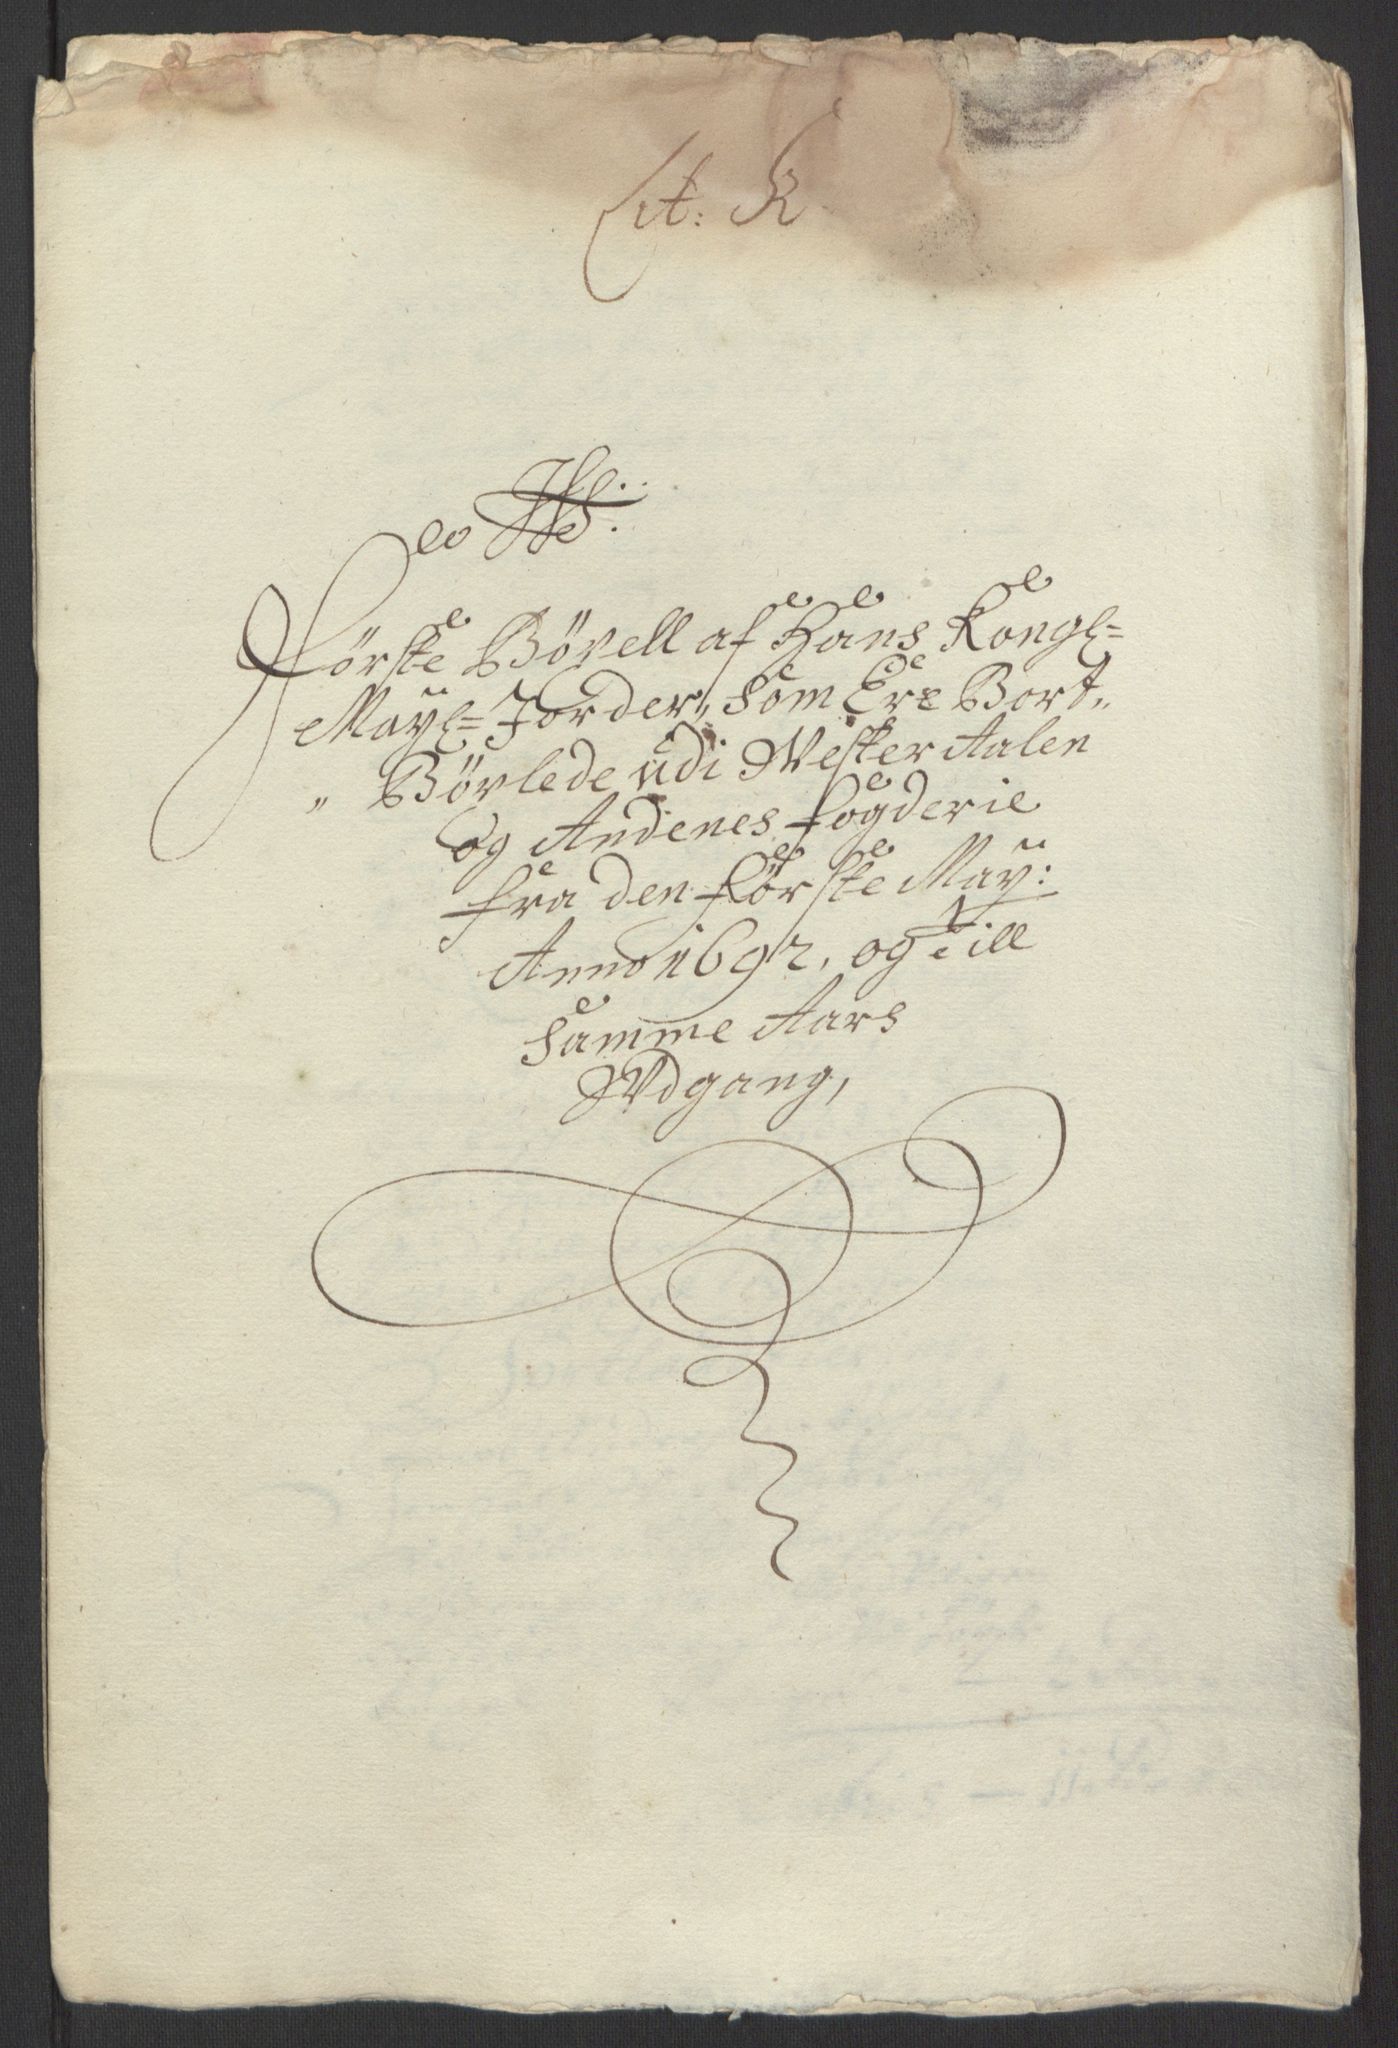 Lit: K
No
Förste Böxell af Hans Kongl=
Mayl= Jorder, Som Ere Bort,,
,, Böxlede udi Wester Aalen
og Andenes fogderie
fra den förste May:
Anno 1692, og till
Samme Aars
Udgang,